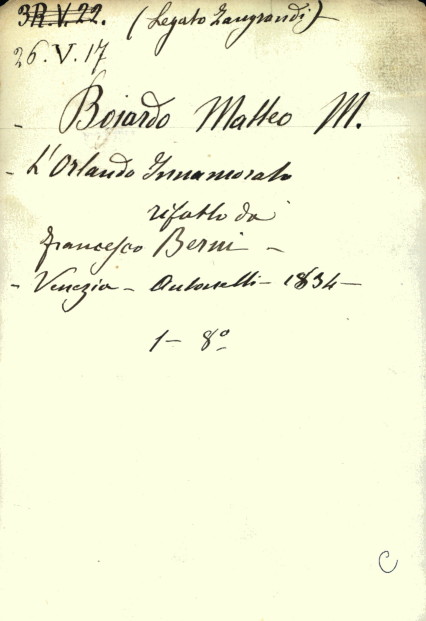 3R.V.22. (Legato Zangrandi)
26.V.17
- Boiardo Matteo M.
- L'Orlando Innamorato
rifatto da
Francesco Berni -
- Venezia - Antonelli - 1834 -
1 - 8º
C